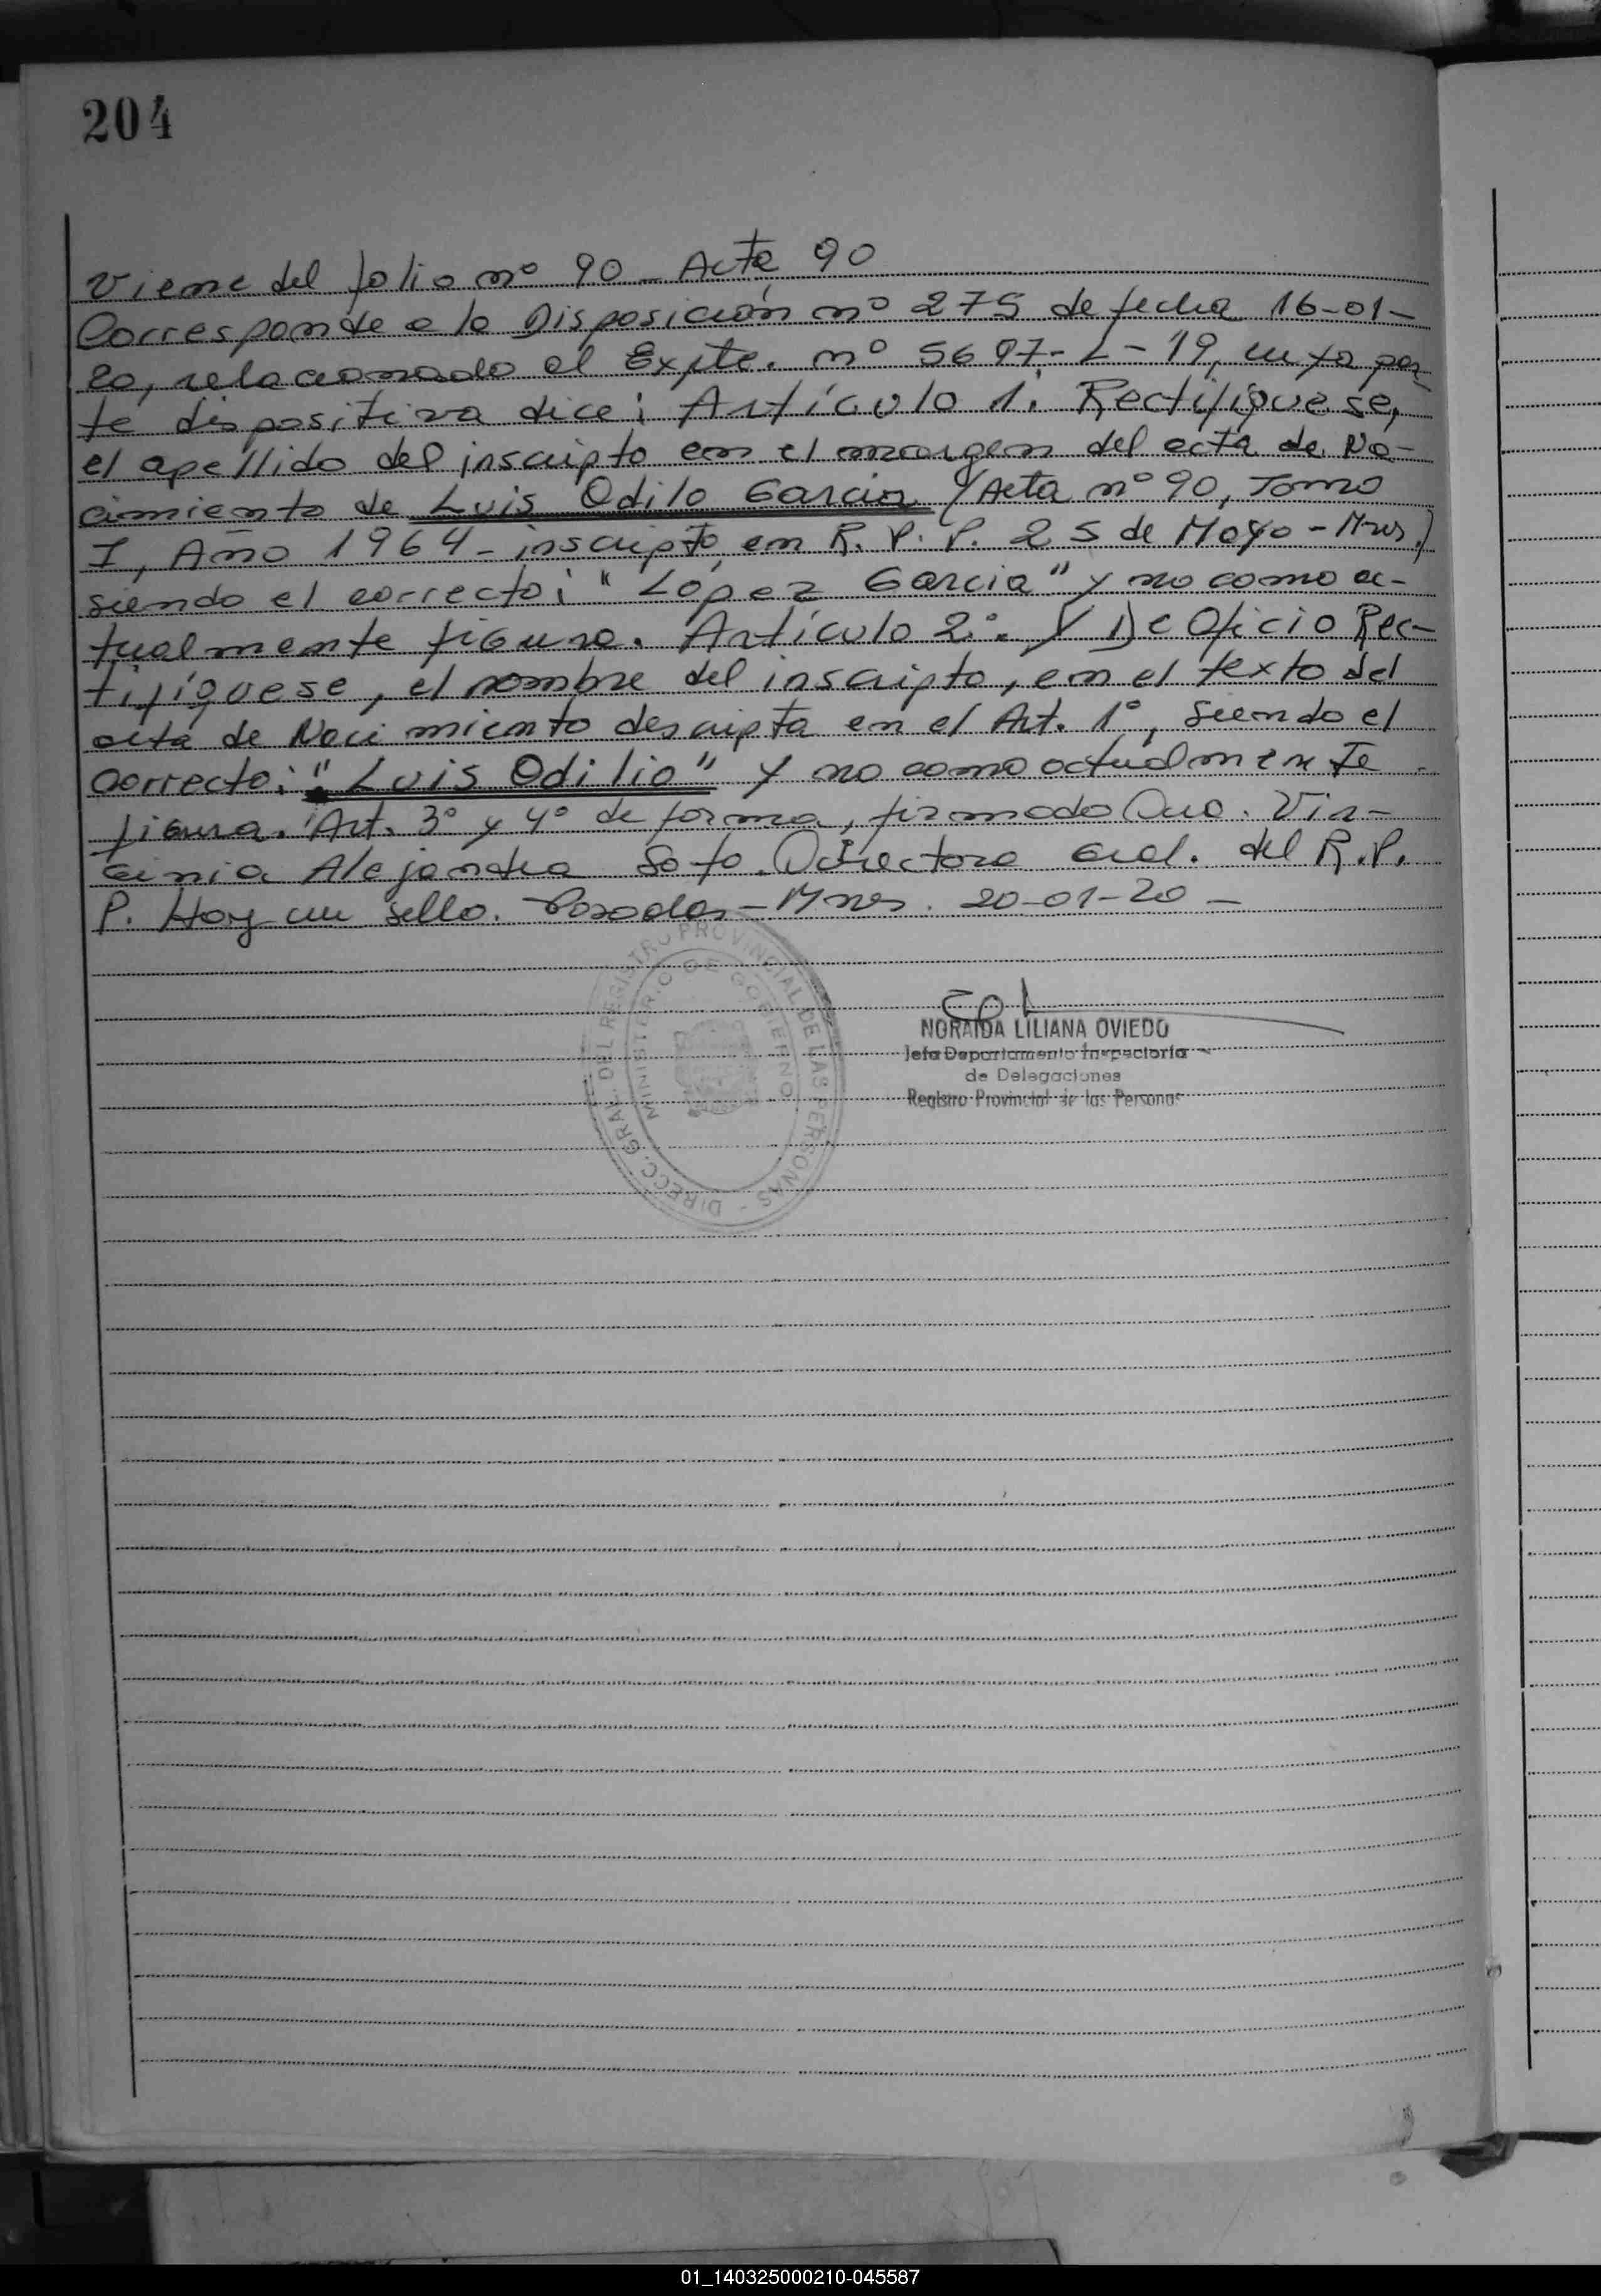 204
Viene del folio nº 90 - Acta 90
Corresponde a la Disposición nº 275 de fecha 16-01-
20, relacionado al Expte. nº 5697-L-19, cuya par-
te dispositiva dice: Artículo 1: Rectifíquese,
el apellido del inscripto en el margen del acta de Na-
cimiento de Luis Odilo Garcia (Acta nº 90, Tomo
I, Año 1964 - inscripto en R. P. P. 25 de Mayo - Mnes.)
siendo el correcto: "López Garcia" y no como ac-
tualmente figura. Artículo 2º. De Oficio Rec-
tifíquese, el nombre del inscripto, en el texto del
acta de Nacimiento descripta en el Art. 1º, siendo el
correcto: "Luis Odilio" y no como actualmente
figura. Art. 3º y 4º de forma, firmado Dra. Vir-
ginia Alejandra Soto. Directora Gral. del R.P.
P. Hay un sello. Posadas - Mnes. 20-01-20 -
DIRECC. GRAL. DEL REGISTRO PROVINCIAL DE LAS PERSONAS -
MINISTERIO DE GOBIERNO
NORAIDA LILIANA OVIEDO
Jefa Departamento Inspectoría
de Delegaciones
Registro Provincial de las Personas
01_140325000210-045587